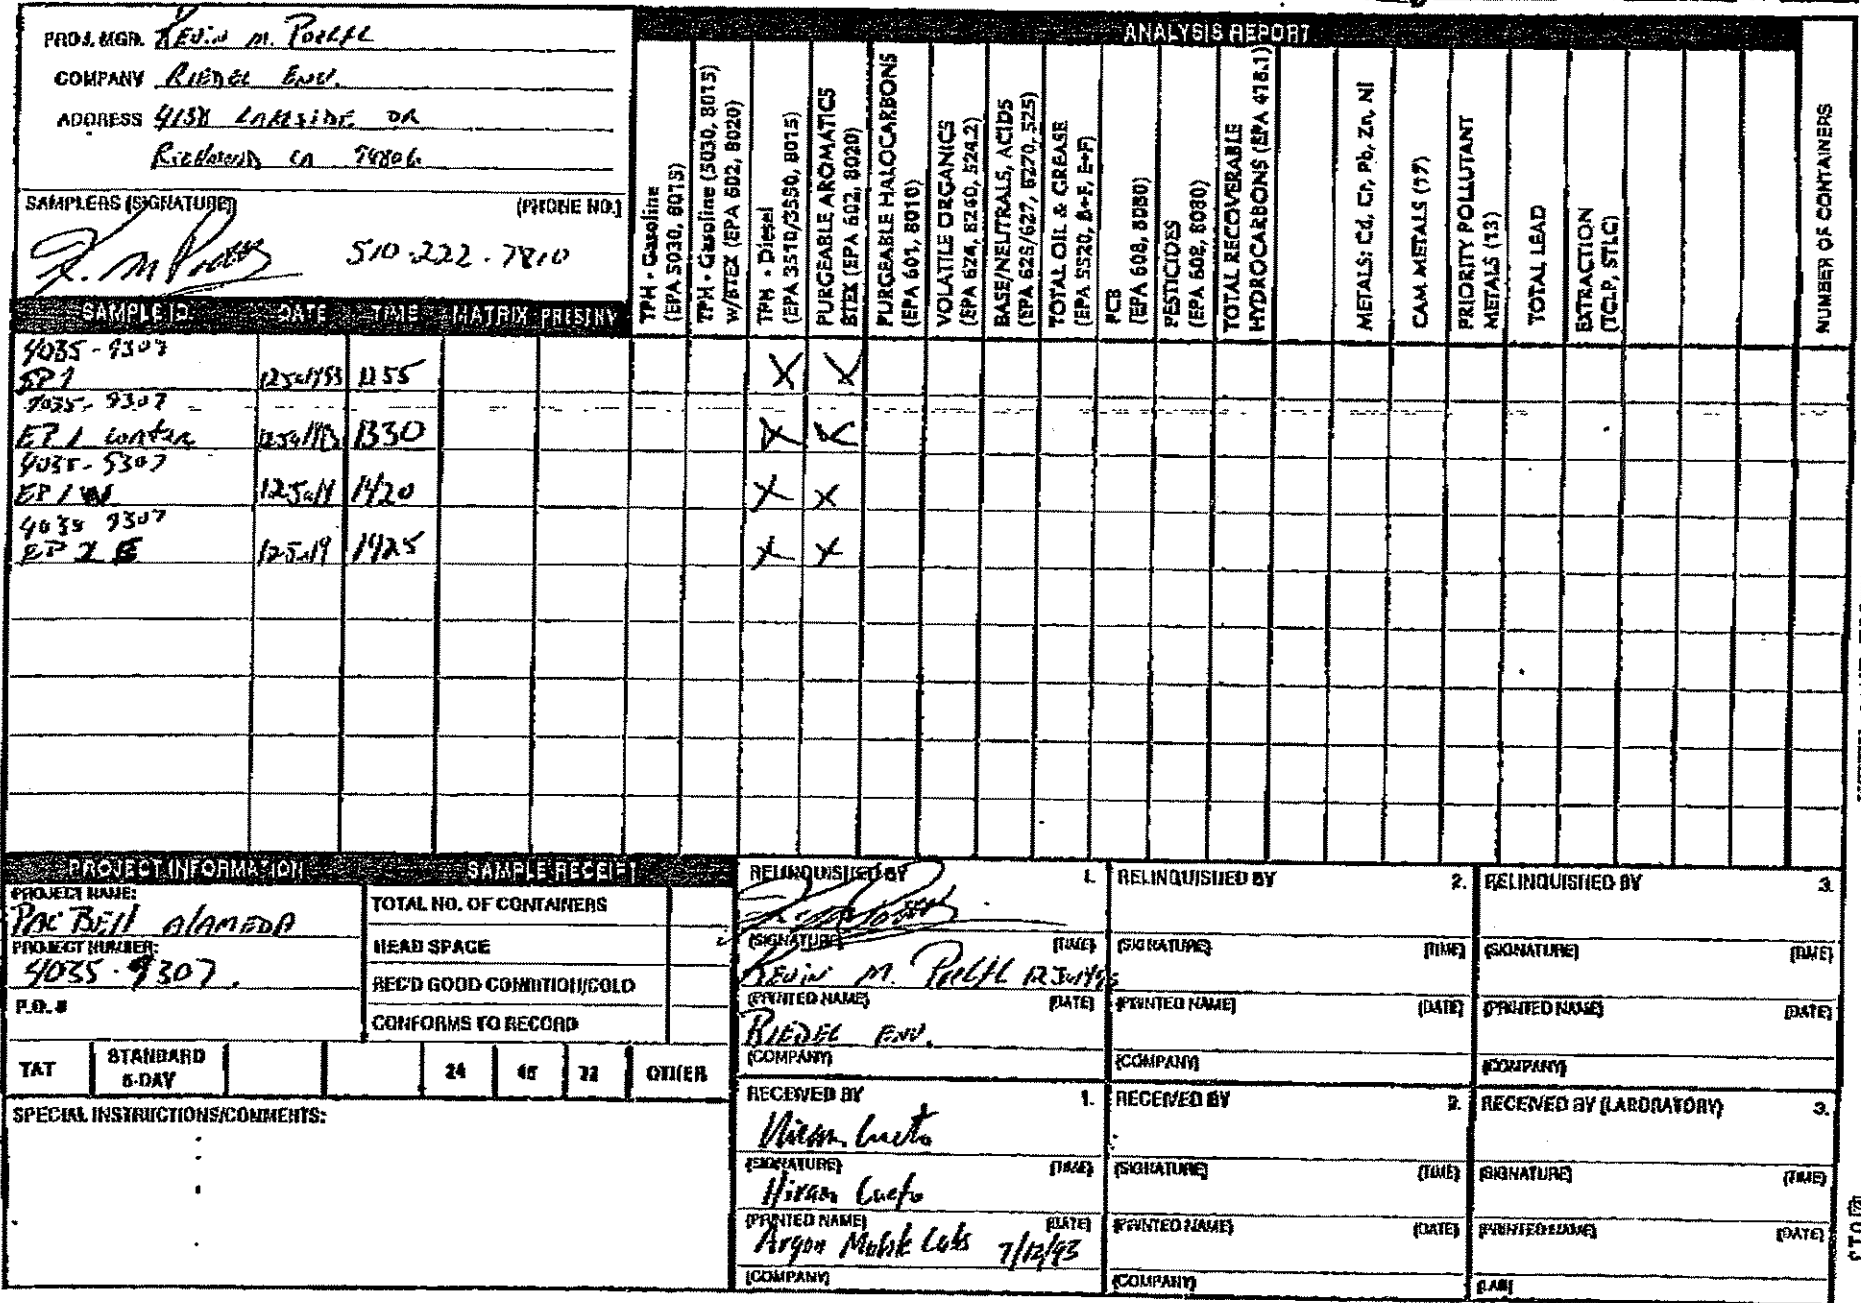 PROJ. MGR. Kevin M.
COMPANY RIEDEL ENV.
ADDRESS 4138 LAKESIDE DR
Richmond CA 94806
SAMPLERS (SIGNATURE) (PHONE NO.)
510-222-7810
ANALYSIS REPORT
TPH - Gasoline
(EPA 5030, 8015)
TPH - Gasoline (5030, 8015)
w/BTEX (EPA 602, 8020)
TPH - Diesel
(EPA 3510/3550, 8015)
PURGEABLE AROMATICS
BTEX (EPA 602, 8020)
PURGEABLE HALOCARBONS
(EPA 601, 8010)
VOLATILE ORGANICS
(EPA 624, 8240, 524.2)
BASE/NEUTRALS, ACIDS
(EPA 625/627, 8270, 525)
TOTAL OIL & GREASE
(EPA 5520, B+F, E+F)
PCB
(EPA 608, 8080)
PESTICIDES
(EPA 608, 8080)
TOTAL RECOVERABLE
HYDROCARBONS (EPA 418.1)
METALS: Cd, Cr, Pb, Zn, Ni
CAM METALS (17)
PRIORITY POLLUTANT
METALS (13)
TOTAL LEAD
EXTRACTION
(TCLP, STLC)
NUMBER OF CONTAINERS
SAMPLE ID. DATE TIME MATRIX PRESERV
4035-9307
SP1 12July93 1255 X X
4035-9307
EP1 12July93 1330 X X
4035-9307
EP1 W 12July 1420 X X
4035 9307
EP 1 E 12July 1425 X X
PROJECT INFORMATION SAMPLE RECEIPT
PROJECT NAME:
PAC BELL ALAMEDA
PROJECT NUMBER:
4035-9307
P.O. #
TOTAL NO. OF CONTAINERS
HEAD SPACE
REC'D GOOD CONDITION/COLD
CONFORMS TO RECORD
TAT STANDARD 5-DAY 24 48 72 OTHER
SPECIAL INSTRUCTIONS/COMMENTS:
RELINQUISHED BY 1.
(SIGNATURE) (TIME)
Kevin M. 12July93
(PRINTED NAME) (DATE)
RIEDEL ENV.
(COMPANY)
RELINQUISHED BY 2.
(SIGNATURE) (TIME)
(PRINTED NAME) (DATE)
(COMPANY)
RELINQUISHED BY 3.
(SIGNATURE) (TIME)
(PRINTED NAME) (DATE)
(COMPANY)
RECEIVED BY 1.
Hiram Cueto
(SIGNATURE) (TIME)
Hiram Cueto
(PRINTED NAME) (DATE)
Argon Mobile Labs 7/12/93
(COMPANY)
RECEIVED BY 2.
(SIGNATURE) (TIME)
(PRINTED NAME) (DATE)
(COMPANY)
RECEIVED BY (LABORATORY) 3.
(SIGNATURE) (TIME)
(PRINTED NAME) (DATE)
(LAB)